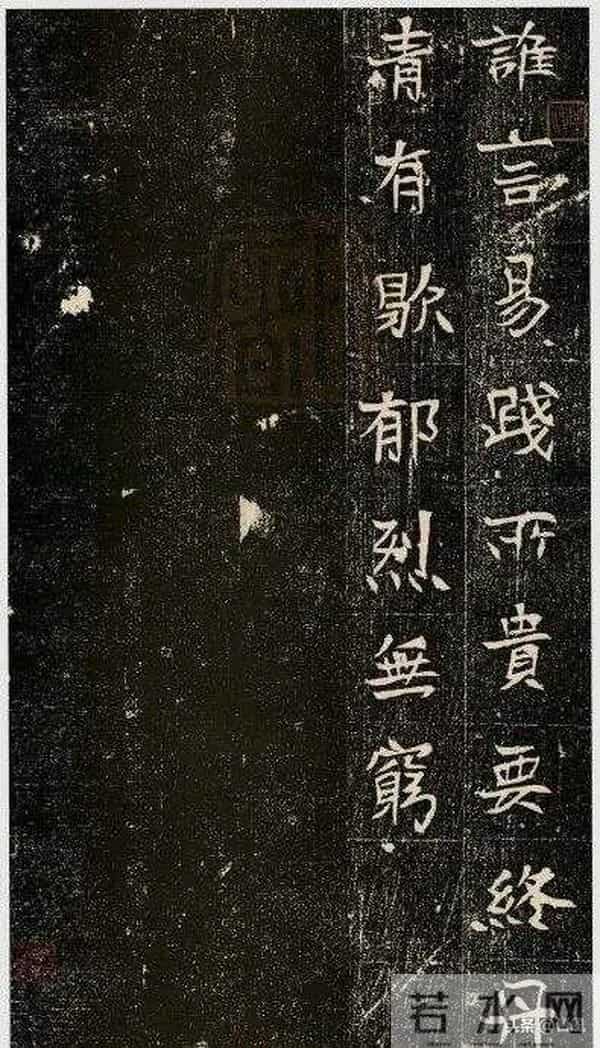 誰言易踐所貴要終丹
青有歇郁烈無窮
若水网
头条